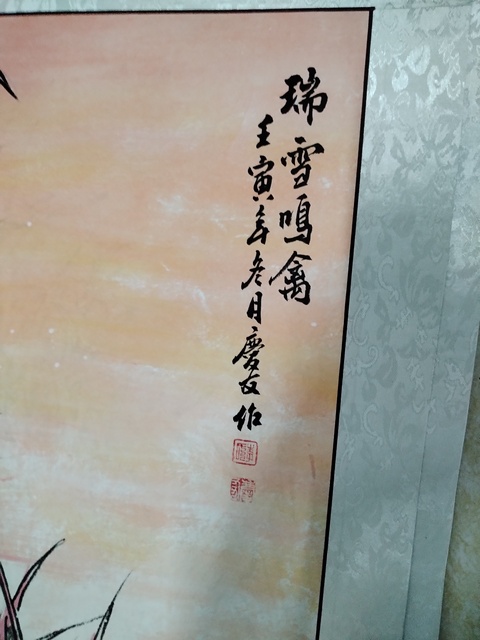 瑞雪鳴禽
壬寅年冬月慶友作